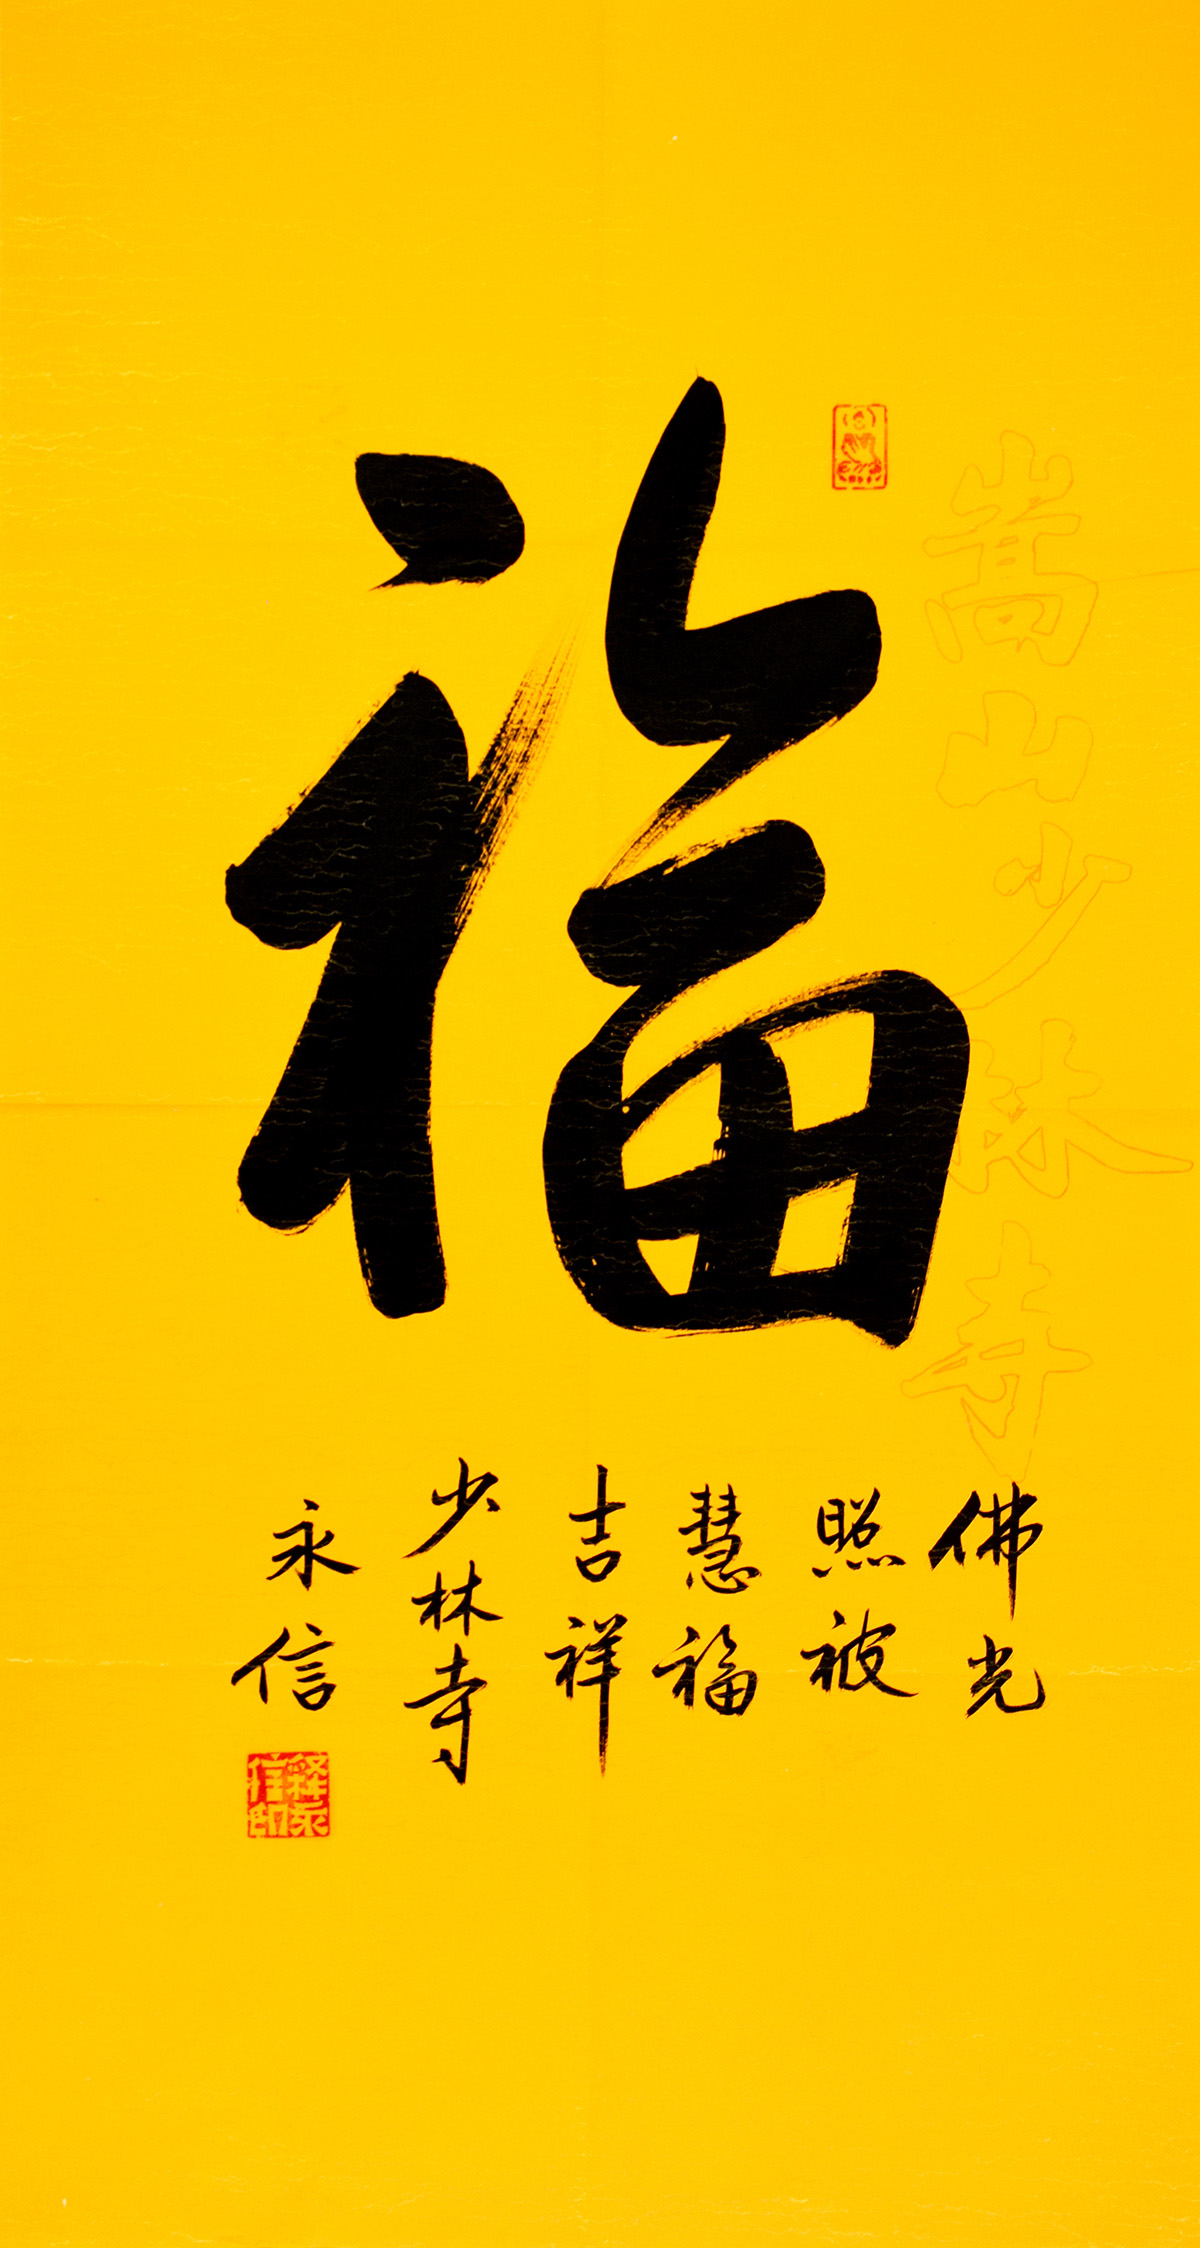 福
嵩山少林寺
佛光
照被
慧福
吉祥
少林寺
永信
釋永信印